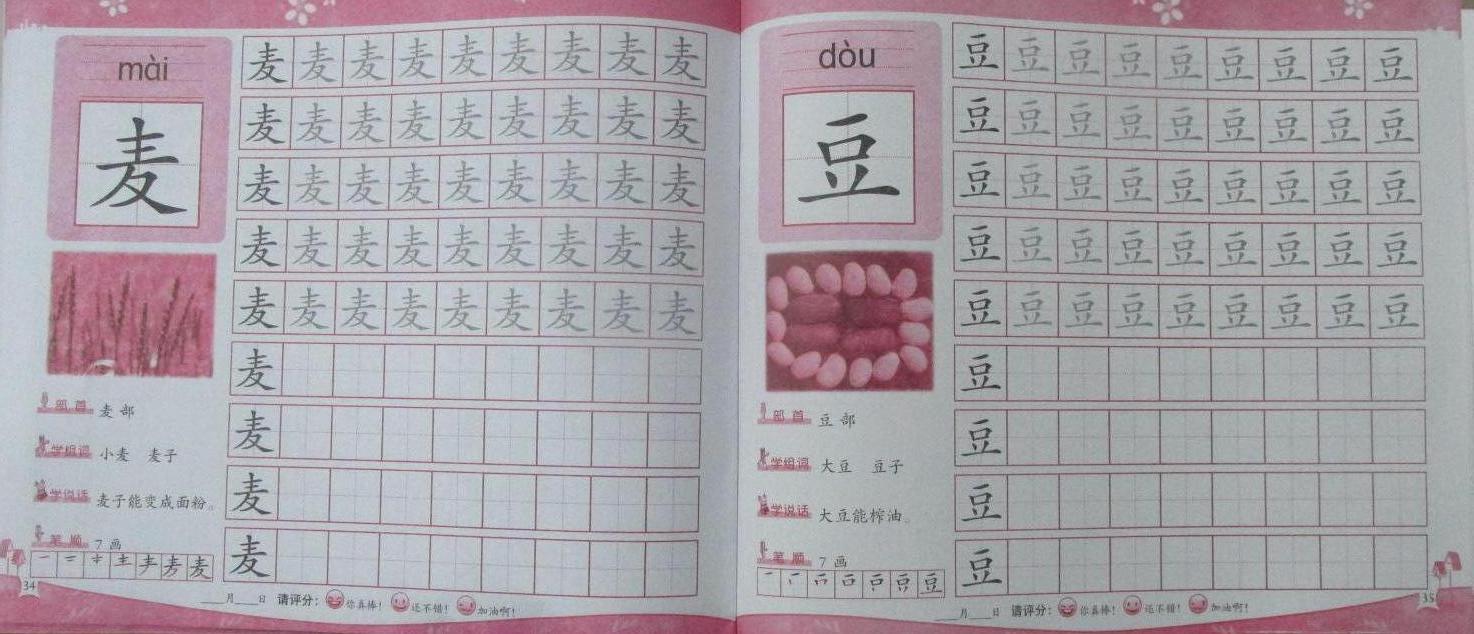 mài
麦
麦麦麦麦麦麦麦麦麦
麦麦麦麦麦麦麦麦麦
麦麦麦麦麦麦麦麦麦
麦麦麦麦麦麦麦麦麦
麦麦麦麦麦麦麦麦麦
麦
麦
麦
麦
部首 麦部
学组词 小麦 麦子
学说话 麦子能变成面粉。
笔顺 7画
麦
34
月 日 请评分： 你真棒! 还不错! 加油啊!
dòu
豆
豆豆豆豆豆豆豆豆豆
豆豆豆豆豆豆豆豆豆
豆豆豆豆豆豆豆豆豆
豆豆豆豆豆豆豆豆豆
豆豆豆豆豆豆豆豆豆
豆
豆
豆
豆
部首 豆部
学组词 大豆 豆子
学说话 大豆能榨油。
笔顺 7画
豆
月 日 请评分： 你真棒! 还不错! 加油啊!
35